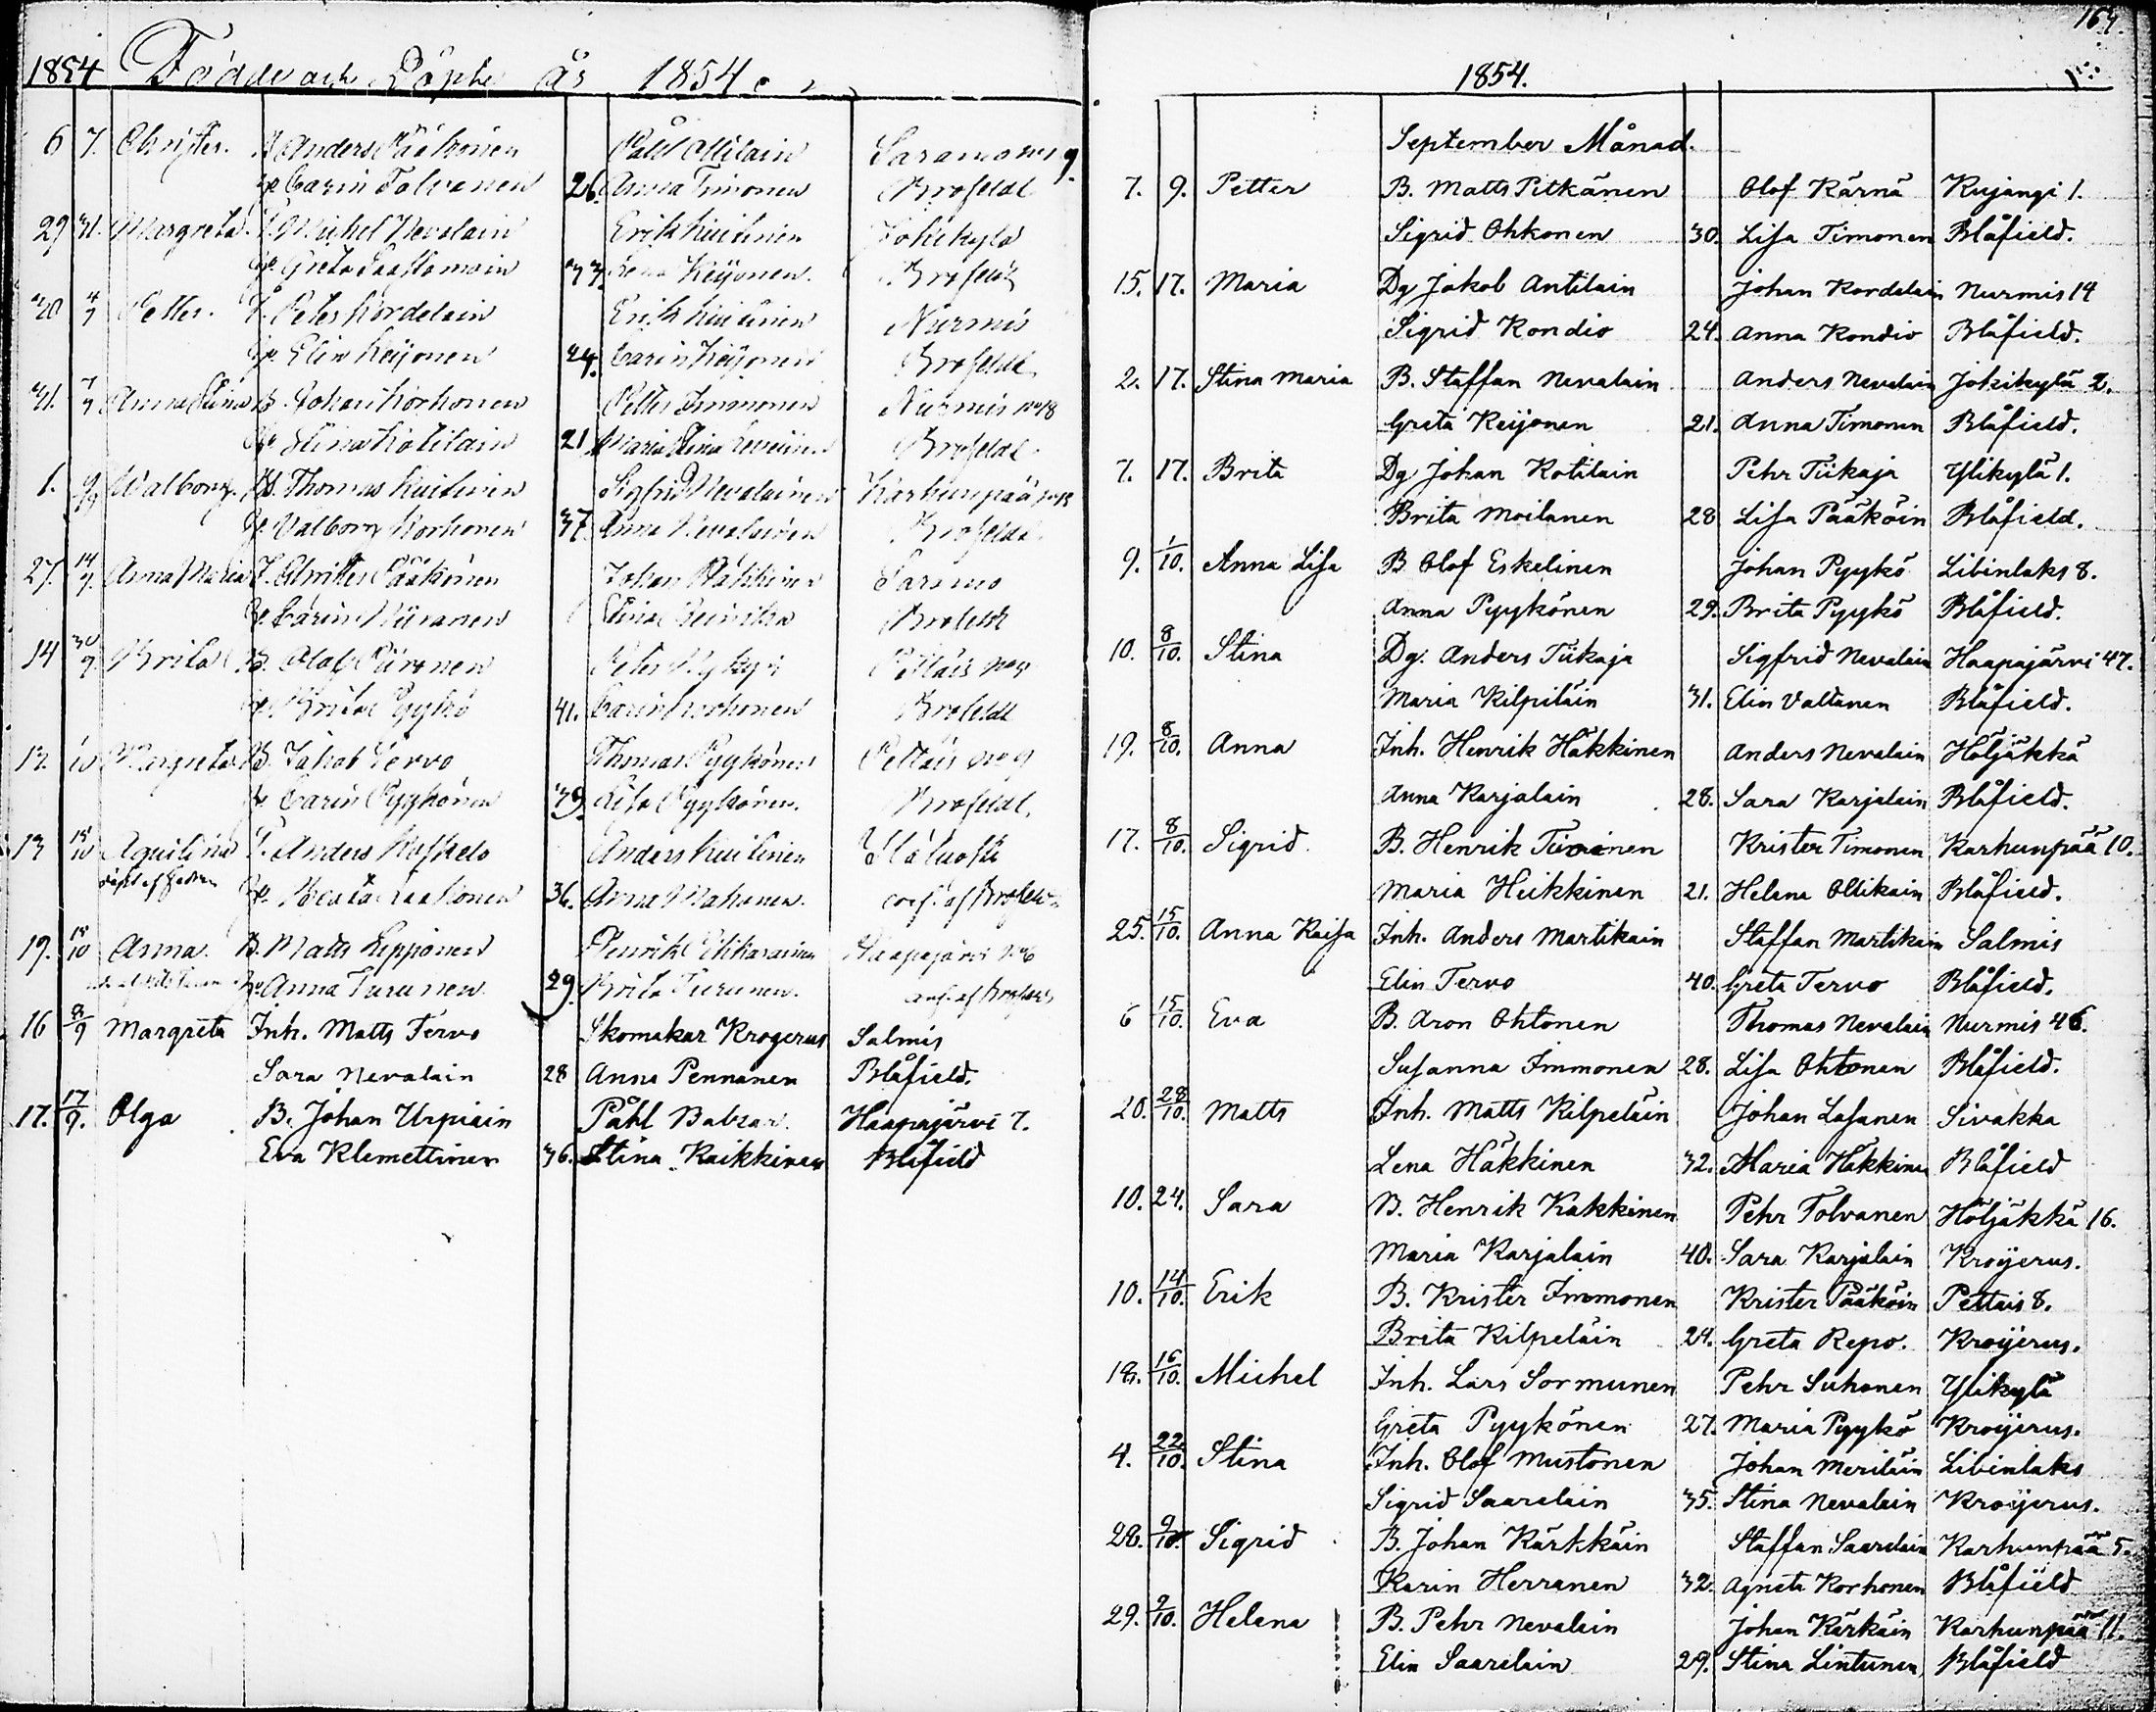 1854 Födde och Döpte År 1854
6 7. Christer. B Anders Pääkönen Påhl Ollilain Saramo No 9
Carin Tolvanen 26. Anna Timonen Brofeldt
29 31. Margreta Michel Nevalain Erik Kuitinen Jokikylä
Greta 33. Lena Keijonen. Brofeldt
30 4/9 Petter. Peter Kordelain Erik Kuitinen Nurmis
Elin Keijonen 24. Carin Keijonen Brofeldt
31. Anna Stina B. Johan Korhonen Petter Immonen Nurmis No 18
Stina Kotilain 21 Maria Stina Brofeldt
1. Walborg. B. Thomas Kuitinen Sigfrid Nevalainen Karhunpää
Valborg Korhonen 37 Anna Nevalainen Brofeldt
27. 14/9. Anna Maria Christer Pääkönen Johan Saramo
Carin Stina Brofeldt
14 30/9. Brita B. Olof Piironen Peter Pettäis
Brita Pyykö 41. Carin Brofeldt
Margreta B. Jakob Tervo Thomas Pyykönen Pettäis No 9
Carin Pyykönen 39. Lisa Pyykönen. Brofeldt.
13 15/10 Aquilina Anders Anders Kuitinen
36. Anna af Brofeldt
19. 15/10 Anna. B. Matts Lipponen Henrik Haapajärvi No 6
Anna Turunen 29. Brita Turunen. af Brofeldt
16 8/9 Margreta Inh. Matts Tervo Skomakar Krogerus Salmis
Sara Nevalain 28 Anna Pennanen Blåfield.
17. 17/9. Olga B. Johan Urpiain Påhl Balzar Haapajärvi 7.
Eva Klemettinen 36. Stina Kaikkinen Blåfield
164.
1854.
September Månad.
7. 9. Petter B. Matts Pitkänen Olof Kärnä Kujangi 1.
Sigrid Ohkonen 30. Lisa Timonen Blåfield.
15. 17. Maria Dg Jakob Antilain Johan Kordelain Nurmis 14
Sigrid Kondio 24. Anna Kondio Blåfield.
2. 17. Stina Maria B. Staffan Nevalain Anders Nevalain Jokikylä 2.
Greta Keijonen 21. Anna Timonen Blåfield.
7. 17. Brita Dg Johan Kotilain Pehr Tiikaja Ylikylä 1.
Brita Moilanen 28 Lisa Pääköin Blåfield.
9. 1/10. Anna Lisa B Olof Eskelinen Johan Pyykö Libinlaks 8.
Anna Pyykönen 29. Brita Pyykö Blåfield.
10. 8/10. Stina Dg. Anders Tiikaja Sigfrid Nevalain Haapajärvi 47.
Maria Kilpiläin 31. Elin Valtanen Blåfield.
19. 8/10. Anna Inh. Henrik Häkkinen Anders Nevalain Höljäkkä
Anna Karjalain 28. Sara Karjalain Blåfield.
17. 8/10. Sigrid B. Henrik Krister Timonen Karhunpää 10.
Maria Heikkinen 21. Helena Ollikain Blåfield.
25. 15/10. Anna Kaisa Inh. Anders Martikain Staffan Martikain Salmis
Elin Tervo 40. Greta Tervo Blåfield.
6 15/10. Eva B. Aron Ohtonen Thomas Nevalain Nurmis 46.
Susanna Immonen 28. Lisa Ohtonen Blåfield.
20. 28/10. Matts Inh. Matts Kilpeläin Johan Lasanen Sivakka
Lena Häkkinen 32. Maria Häkkinen Blåfield
10. 24. Sara B. Henrik Kakkinen Pehr Tolvanen Höljäkkä 16.
Maria Karjalain 40. Sara Karjalain Kroijerus.
10. 14/10. Erik B. Krister Immonen Krister Pääköin Pettais 8.
Brita Kilpeläin 24. Greta Repo. Kroijerus.
18. 16/10. Michel Inh. Lars Sormunen Pehr Suhonen Ylikylä
Greta Pyykönen 27. Maria Pyykö Kroijerus.
4. 22/10. Stina Inh. Olof Mustonen Johan Meriläin Libinlaks
Sigrid Saarelain 35. Stina Nevalain Kroijerus.
28. 9/10. Sigrid B. Johan Kärkkäin Staffan Saarelain Karhunpää 5.
Karin Herranen 32. Agneta Korhonen Blåfield
29. 9/10. Helena B. Pehr Nevalain Johan Kärkäin Karhunpää 11.
Elin Saarelain 29. Stina Lintunen Blåfield